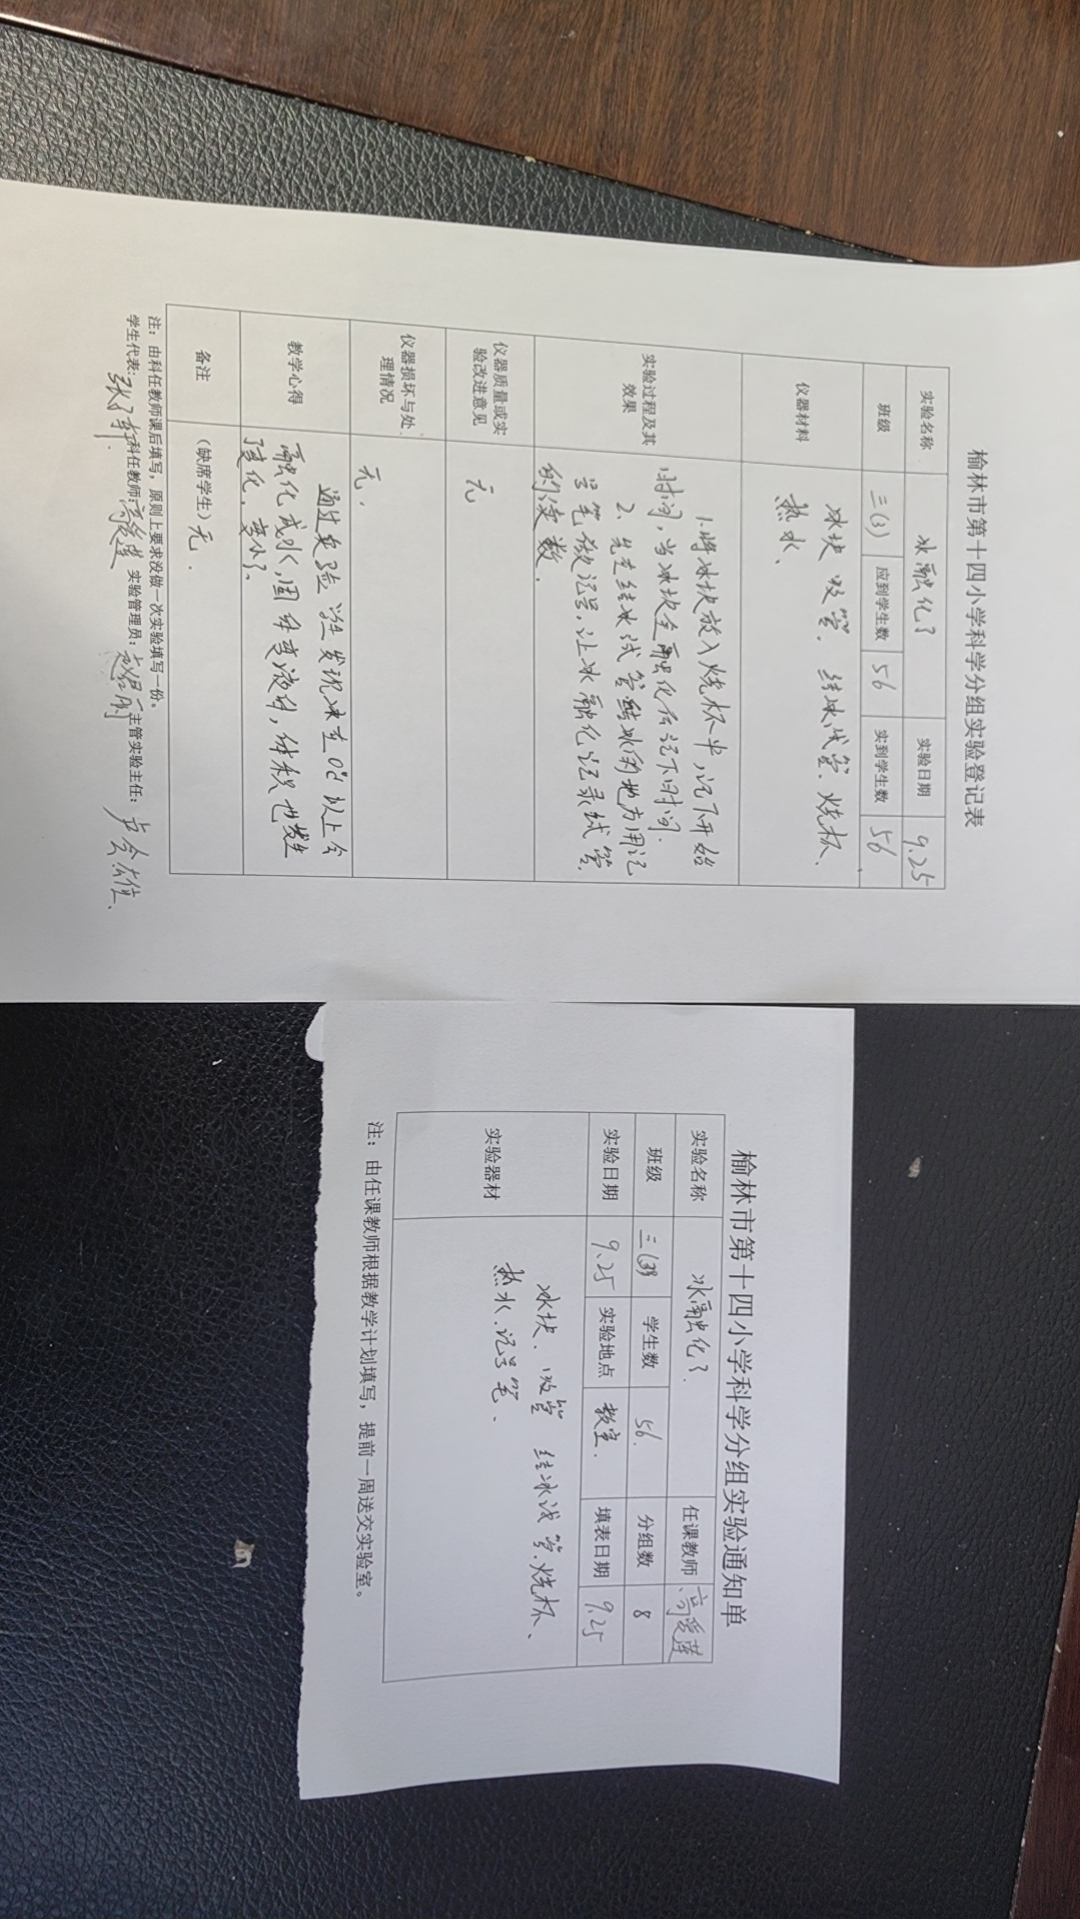 榆林市第十四小学科学分组实验登记表
实验名称 冰融化了 实验日期 9.25
班级 三(3) 应到学生数 56 实到学生数 56
仪器材料 冰块 吸管. 结冰试管. 烧杯、
热水、
实验过程及其效果 1.将冰块放入烧杯中,记下开始
时间,当冰块全融化后记下时间.
2、先在结冰试管结冰的地方用记
号笔做记号,让冰融化记录试管
的读数.
仪器质量或实验改进意见 无
仪器损坏与处理情况 无.
教学心得 通过实验 学生发现冰在0℃以上会
融化成水,固体变液体,体积也发生
了变化.变小了.
备注 (缺席学生)无.
注:由科任教师课后填写,原则上要求没做一次实验填写一份。
学生代表: 科任教师: 实验管理员: 主管实验主任:
榆林市第十四小学科学分组实验通知单
实验名称 冰融化了. 任课教师 高爱莲
班级 学生数 56. 分组数 8
实验日期 9.25 实验地点 教室. 填表日期 9.25
实验器材 冰块、吸管 结冰试管.烧杯、
热水.记号笔.
注:由任课教师根据教学计划填写,提前一周送交实验室。